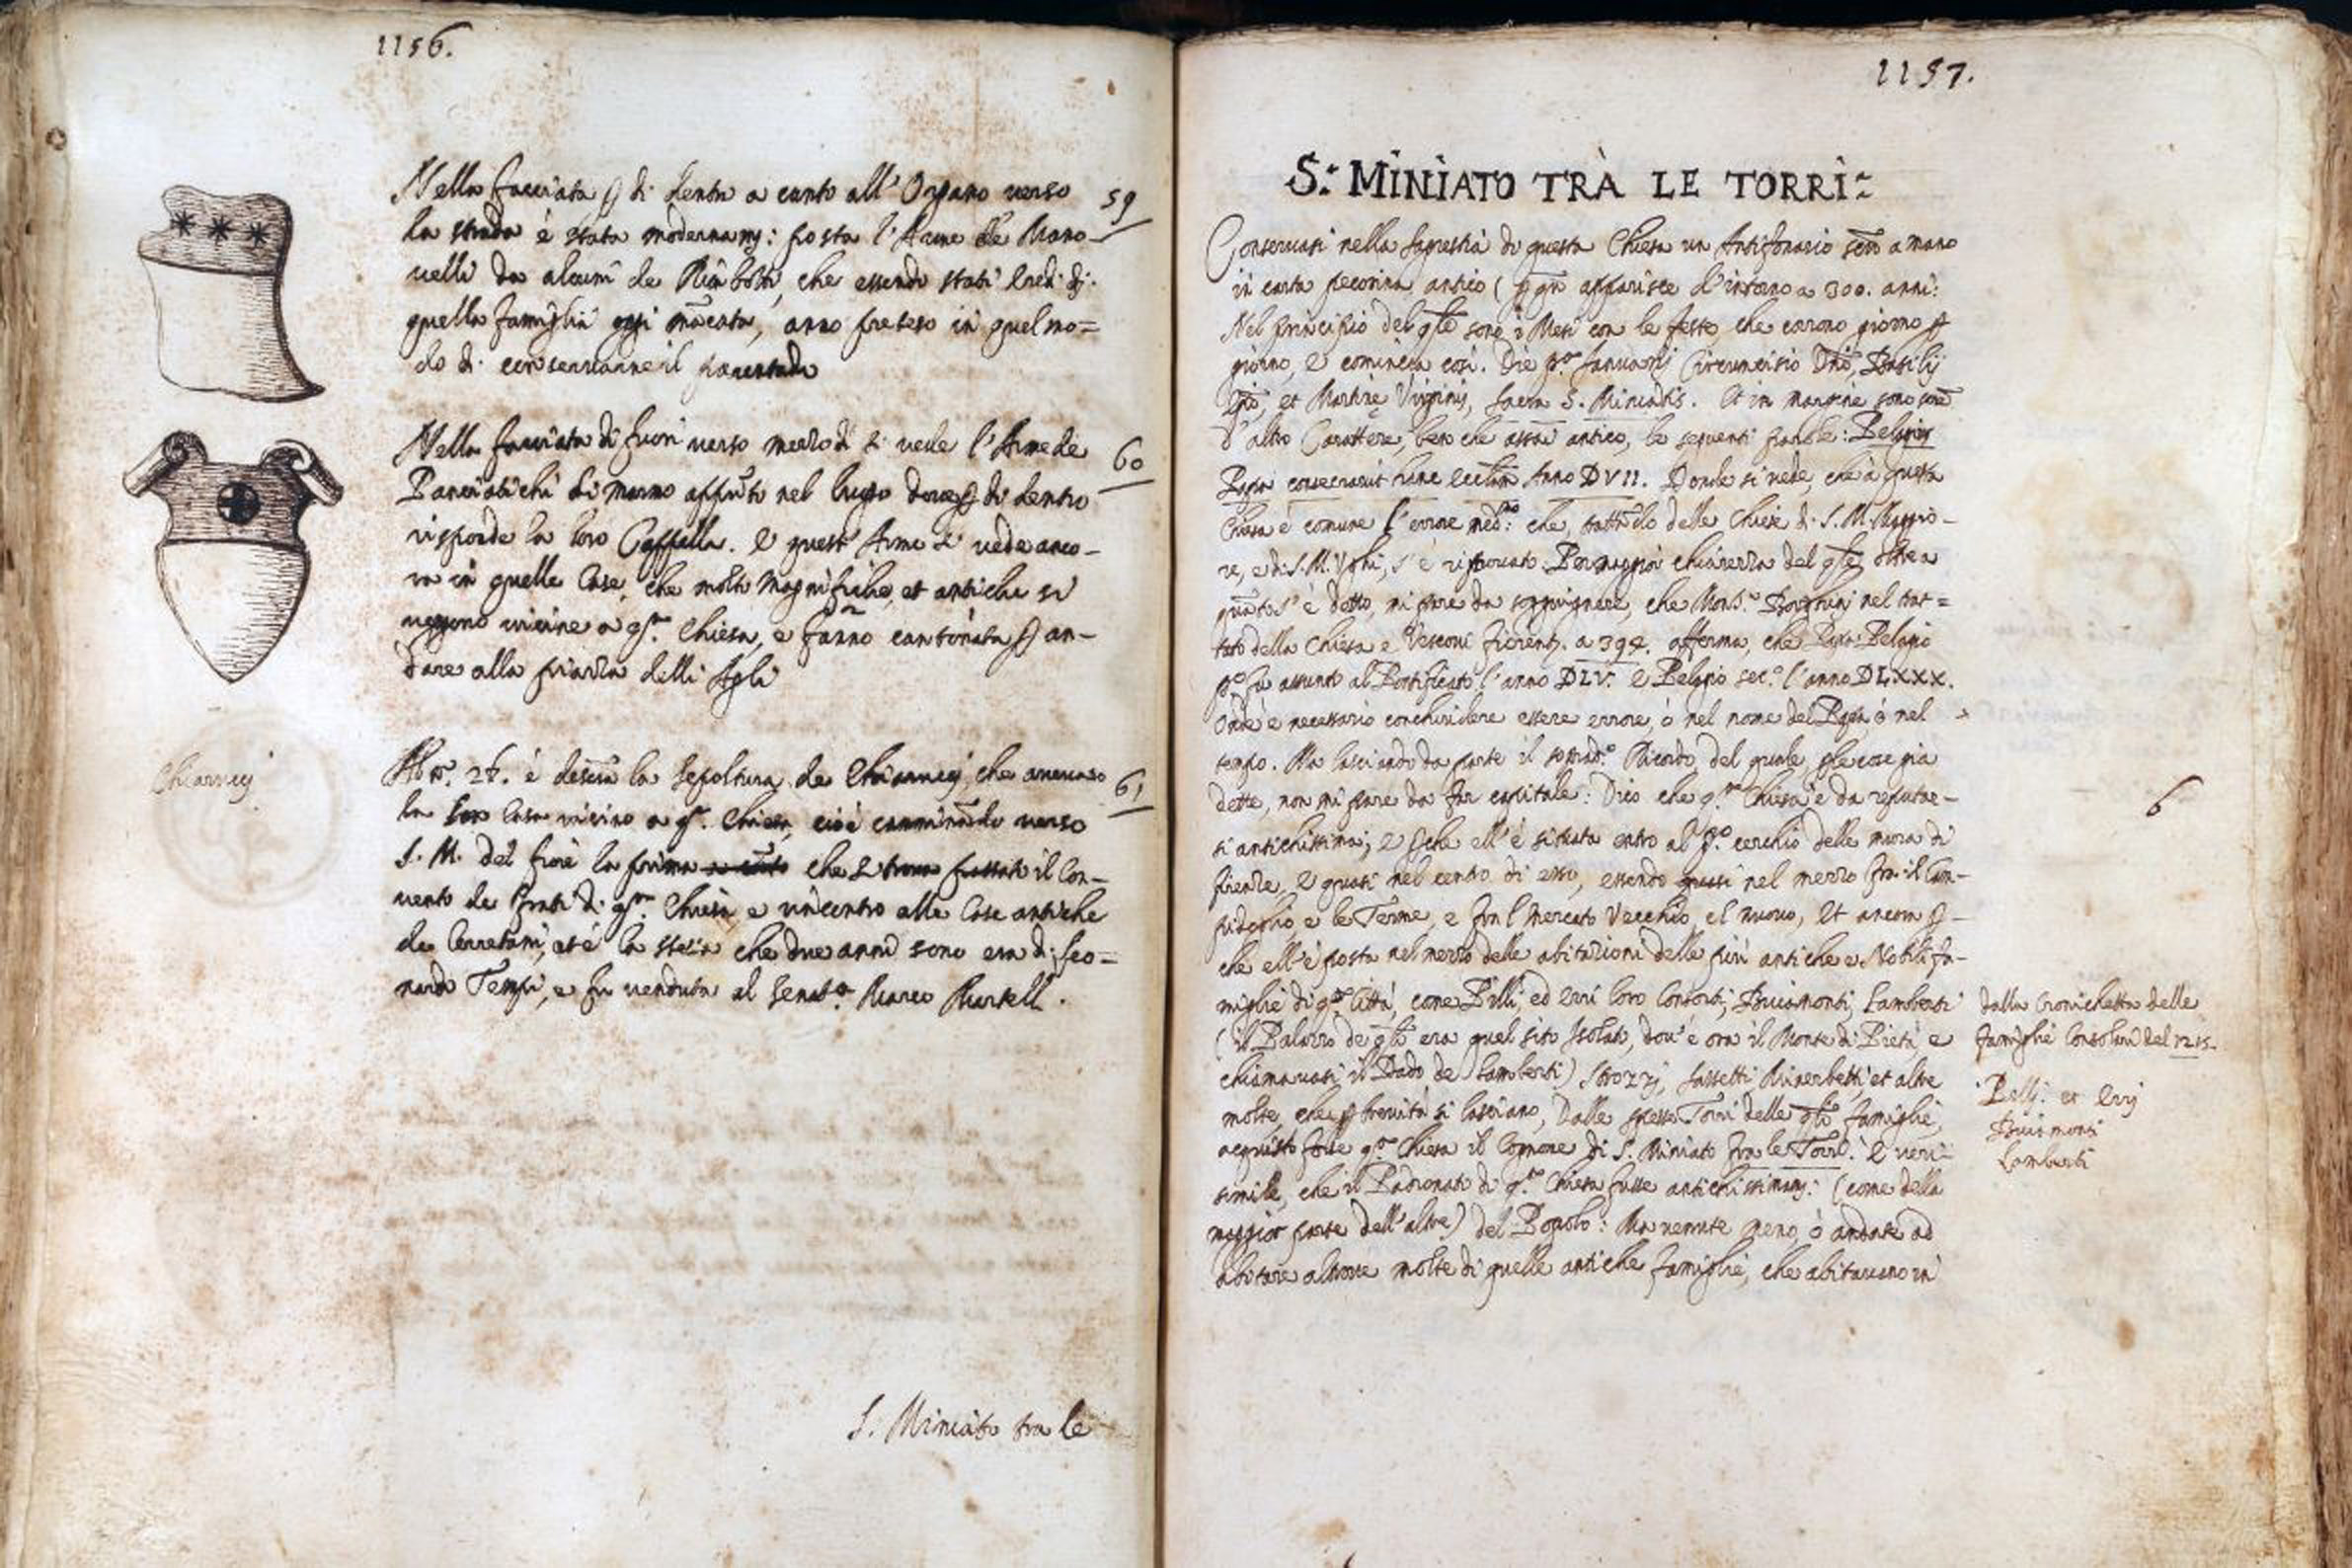 1156.
Nella facciata ꝑ di dentro a canto all' Organo verso 59
la strada è stata modernamᵗᵉ: posta l'Arme de Mano-
velli da alcuni de che essendo stati Eredi di
quella famiglia oggi mācata, anno preteso in quel mo=
do di conservarne il parentado
Nella facciata di fuori verso mezzodì si vede l'Arme de 60
Panciatichi di marmo appūto nel luogo dove ꝑ di dentro
risponde la loro Cappella. e quest' Arme si vede anco-
ra in quelle Case, che molto magnifiche, et antiche si
veggono vicine a qᵗᵃ. Chiesa, e fanno cantonata ꝑ an-
dare alla piazza delli Agli
Chiarucij
Al nᵒ. 26. è descrᵗᵃ la sepoltura de Chiarucij, che avevano 61
la loro Casa vicino a qᵗᵃ. Chiesa, cioè caminādo verso
S. M. del fiore la prima che si trova passato il Con-
vento de frati di qᵗᵃ. Chiesa e rincontro alle Case antiche
de Cerretani, et è la stessa che due anni sono era di Leo=
nardo Tempi, e fu venduta al Senatᵒʳᵉ Marco Martelli.
S. Miniato tra le
1157.
S: MINIATO TRÀ LE TORRI:
Conservasi nella sagrestia di questa Chiesa un Antifonario scrᵗᵒ a mano
in carta pecorina antico ( apparisce d'intorno a 300. anni:
Nel principio del qᵗᵉ sono i Mesi con le feste, che corrono giorno ꝑ
giorno, e comincia così. Die pᵒ. Januarij Circumcisio Dnī, Basilij
et Martinę Virginis, S. Miniatis. Et in margine sono scrᵗᵉ
d'altro Carattere, ben che assai antico, le seguenti parole: Pelagius
Papa consecravit hanc Eccliam Anno DVII. Donde si vede, che à questa
Chiesa è comune l'errore medᵐᵒ: che, trattādo delle Chiese di S. M. Maggio-
re, e di S. M. Ughi, s'è riprovato. Per maggior chiarezza del qᵗᵉ, oltre a
quāto s'è detto, mi pare da soggiugnere, che Monsʳᵉ. Borghini nel trat=
tato della Chiesa e Vescovi fiorentⁱ. a 394. afferma, che Papa Pelagio
pᵒ. fu assunto al Pontificato l'anno DLV. e Pelagio secᵒ. l'anno DLXXX.
Onde è necessario conchiudere essere errore, ò nel nome del Papa, ò nel
tempo. Ma lasciando da parte il sopradᵗᵒ. Ricordo, del quale, ꝑ le cose già
dette, non mi pare da far capitale: Dico che qᵗᵃ. Chiesa è da reputar- 6
si antichissima; e ꝑche ell'è situata entro al pᵒ. cerchio delle mura di
firenze, e quasi nel centro di esso, essendo quasi nel mezzo fra il Cam-
pidoglio, e le Terme, e fra l mercato Vecchio, el nuovo, Et ancora ꝑ-
che ell'è posta nel mezzo delle abitazioni delle più antiche e Nobili fa-
miglie di qᵗᵃ. Città, come Pilli, ed Erri loro Consorti; Buiamonti, Lamberti
dalla Cronichetta delle
famiglie Consolari del 1215.
(il Palazzo de qᵗⁱ era quel sito Isolato, dov'è ora il Monte di Pietà, e
chiamavasi il Dado de Lamberti) Strozzj, Sassetti, Minerbetti, et altre
Pillj. et Errj
Buiamonti
Lamberti
molte, che ꝑ brevità si lasciano, Dalle spesse Torri delle qᵗⁱ famiglie,
acquistò forse qᵗᵃ. Chiesa il Cognome di S. Miniato fra le Torri. È veri=
simile, che il Padronato di qᵗᵃ. Chiesa fusse antichissimamᵗᵉ: (come della
maggior parte dell'altre) del Popolo: Ma venute meno, ò andate ad
abitare altrove molte di quelle antiche famiglie, che abitavano in